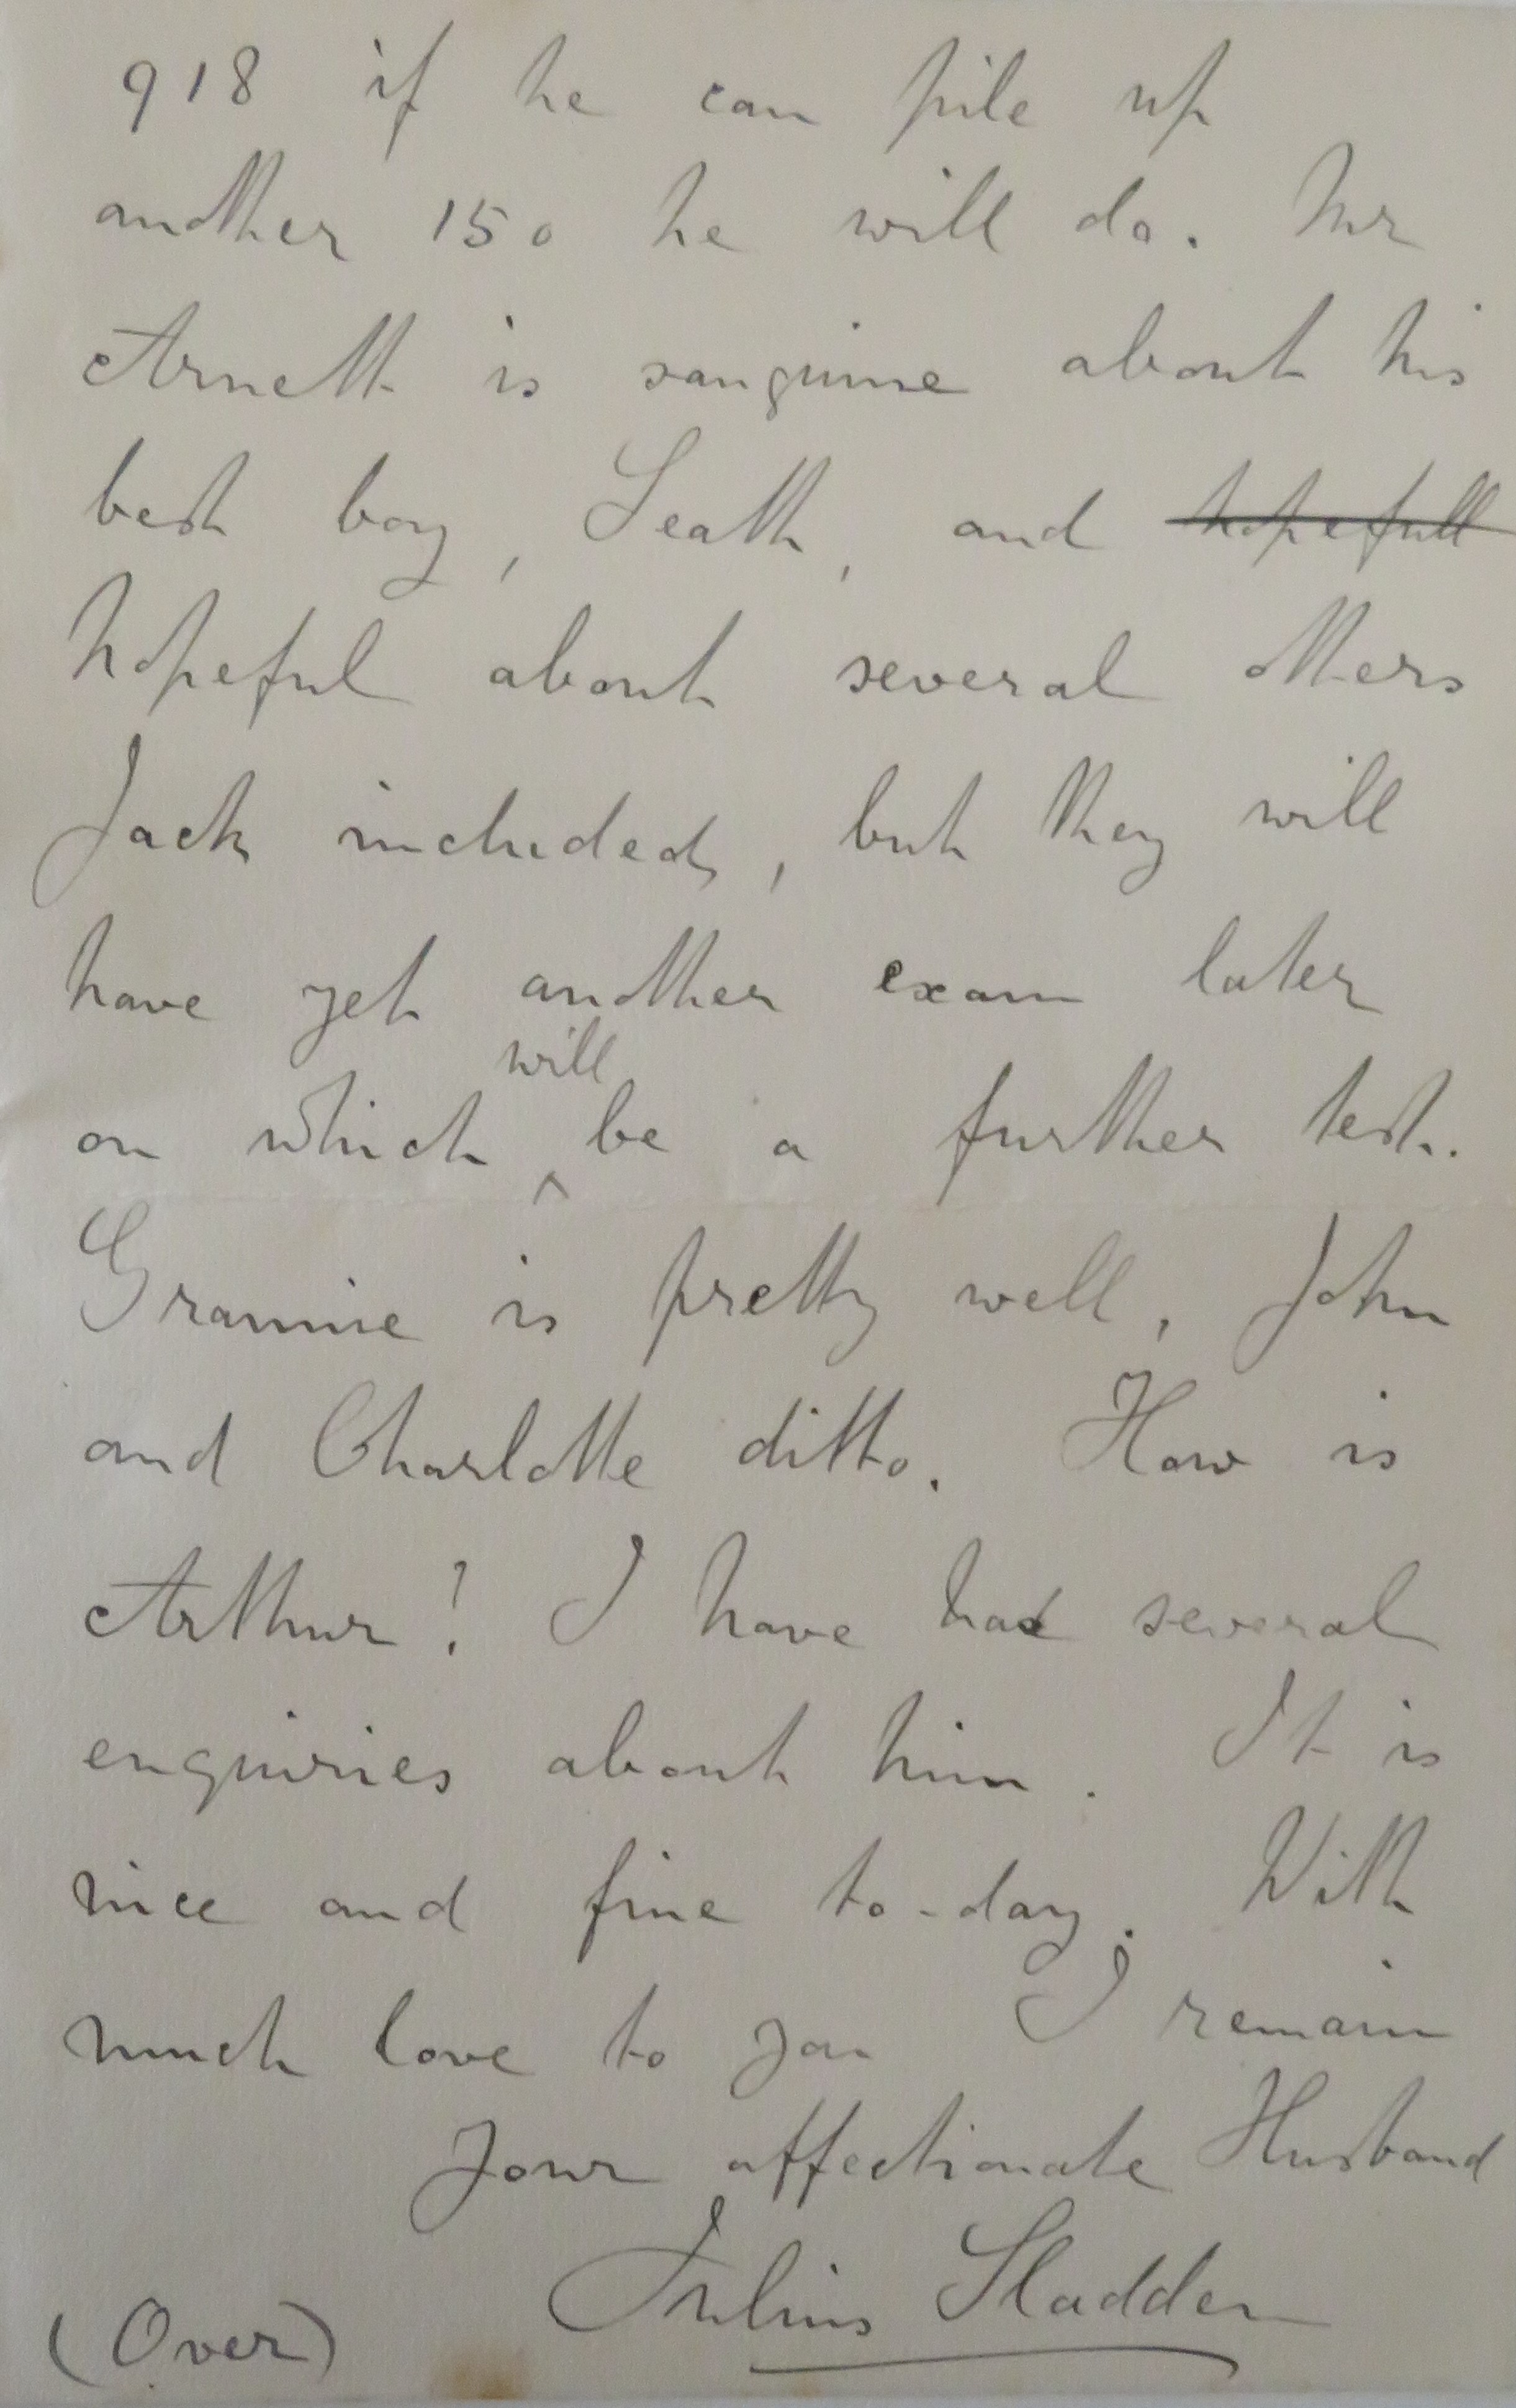 918 if he can pile up
another 150 he will do. Mr
Arnett is sanguine about his
best boy, Seath, and hopefull
hopeful about several others
Jack included, but they will
have yet another exam later
on which will be a further test.
Grannie is pretty well, John
and Charlotte ditto. How is
Arthur? I have had several
enquiries about him. It is
nice and fine to-day. With
much love to you I remain
Your affectionate Husband
Julius Sladden
(Over)